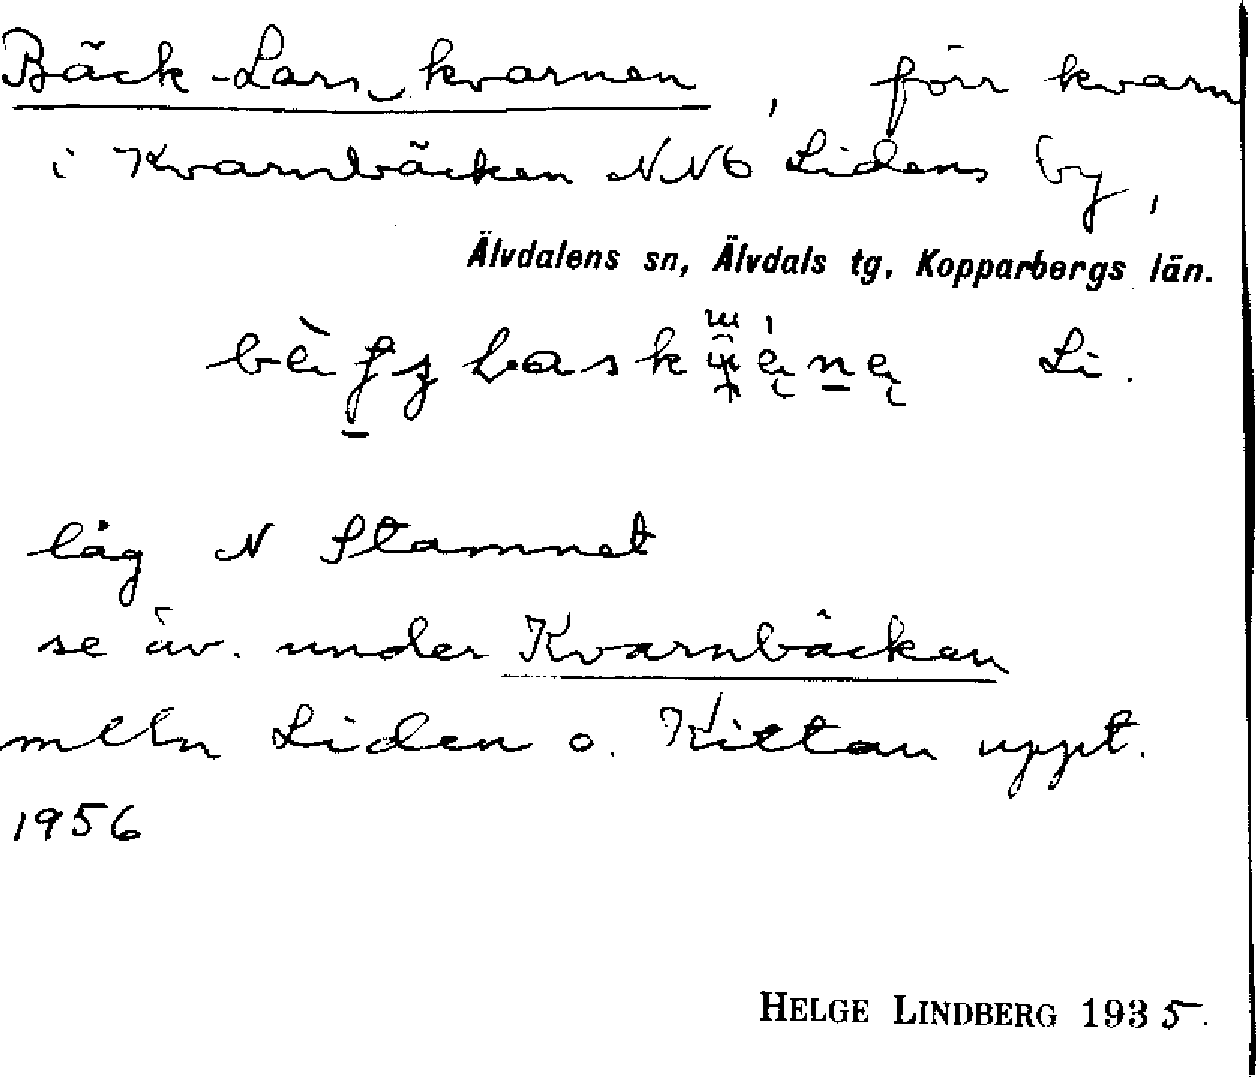 Bäck-Lars_kvarnen, förr kvarn
i Kvarnbäcken NNO Lidens by,
Älvdalens sn, Älvdals tg, Kopparbergs län.
Li.
låg N Stamnet
se äv. under Kvarnbäcken
mlln Liden o. Kittan uppt.
1956
HELGE LINDBERG 1935.